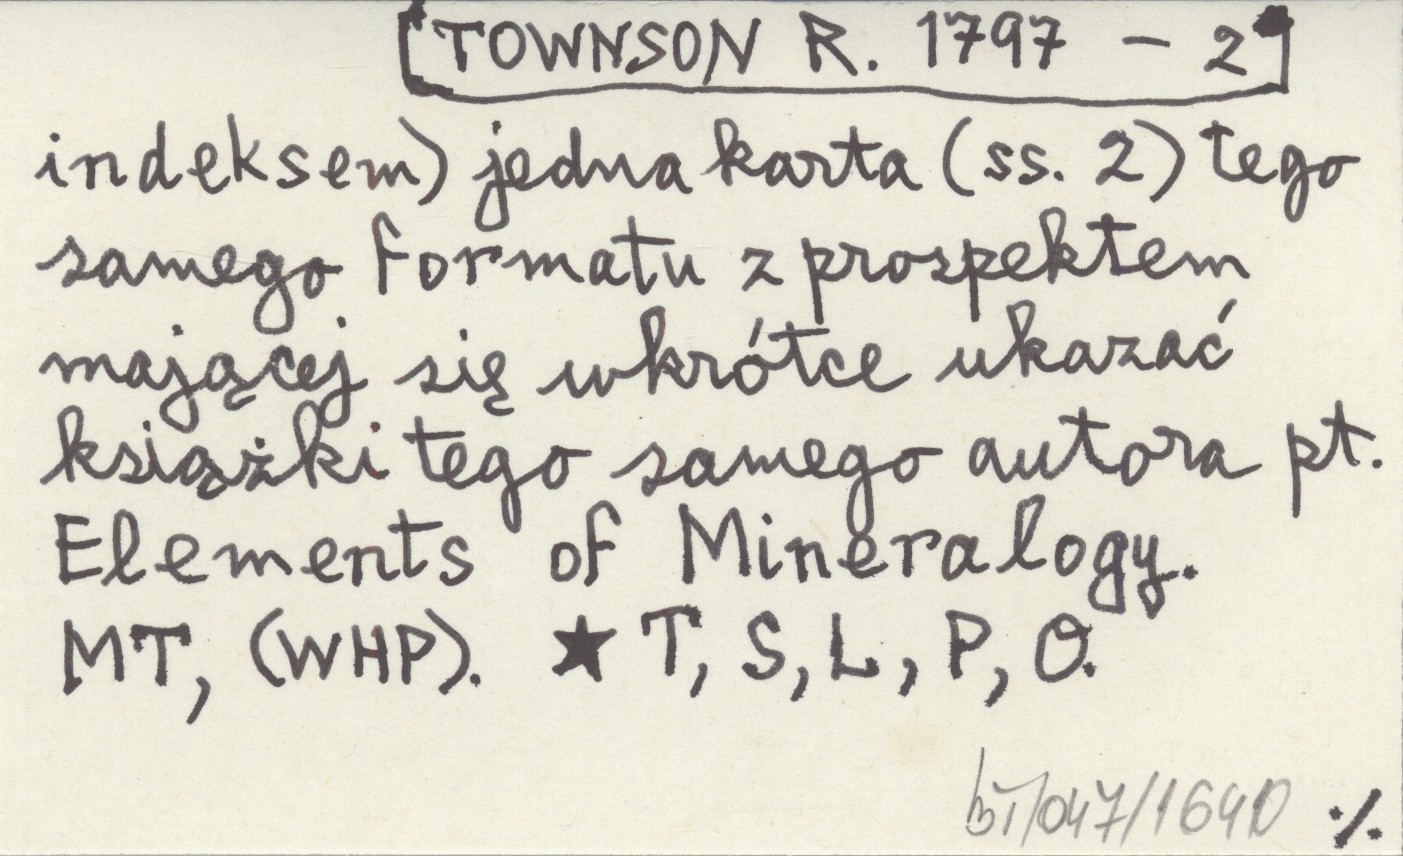 [TOWNSON R. 1797 - 2]
indeksem) jedna karta (ss. 2) tego
samego formatu z prospektem
mającej się wkrótce ukazać
książki tego samego autora pt.
Elements of Mineralogy.
MT, (WHP). ★ T, S, L, P, O.
/047/1640 ./.